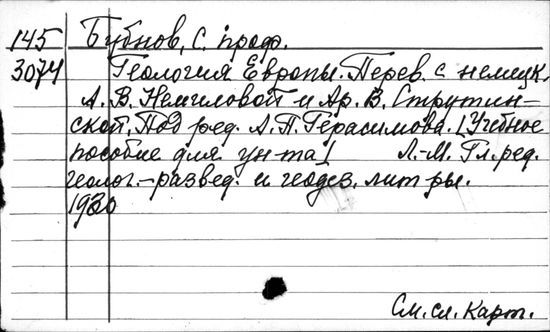 145 Бубнов, С. проф.
3074 Геология Европы. Перев. с немецк.
А. В. Немиловой и Ар. В. Струтин-
ской. Под ред. А. П. Герасимова. [Учебное
пособие для ун-та] Л.-М. Гл. ред.
геолог.-развед. и геодез. лит-ры.
См. сл. карт.